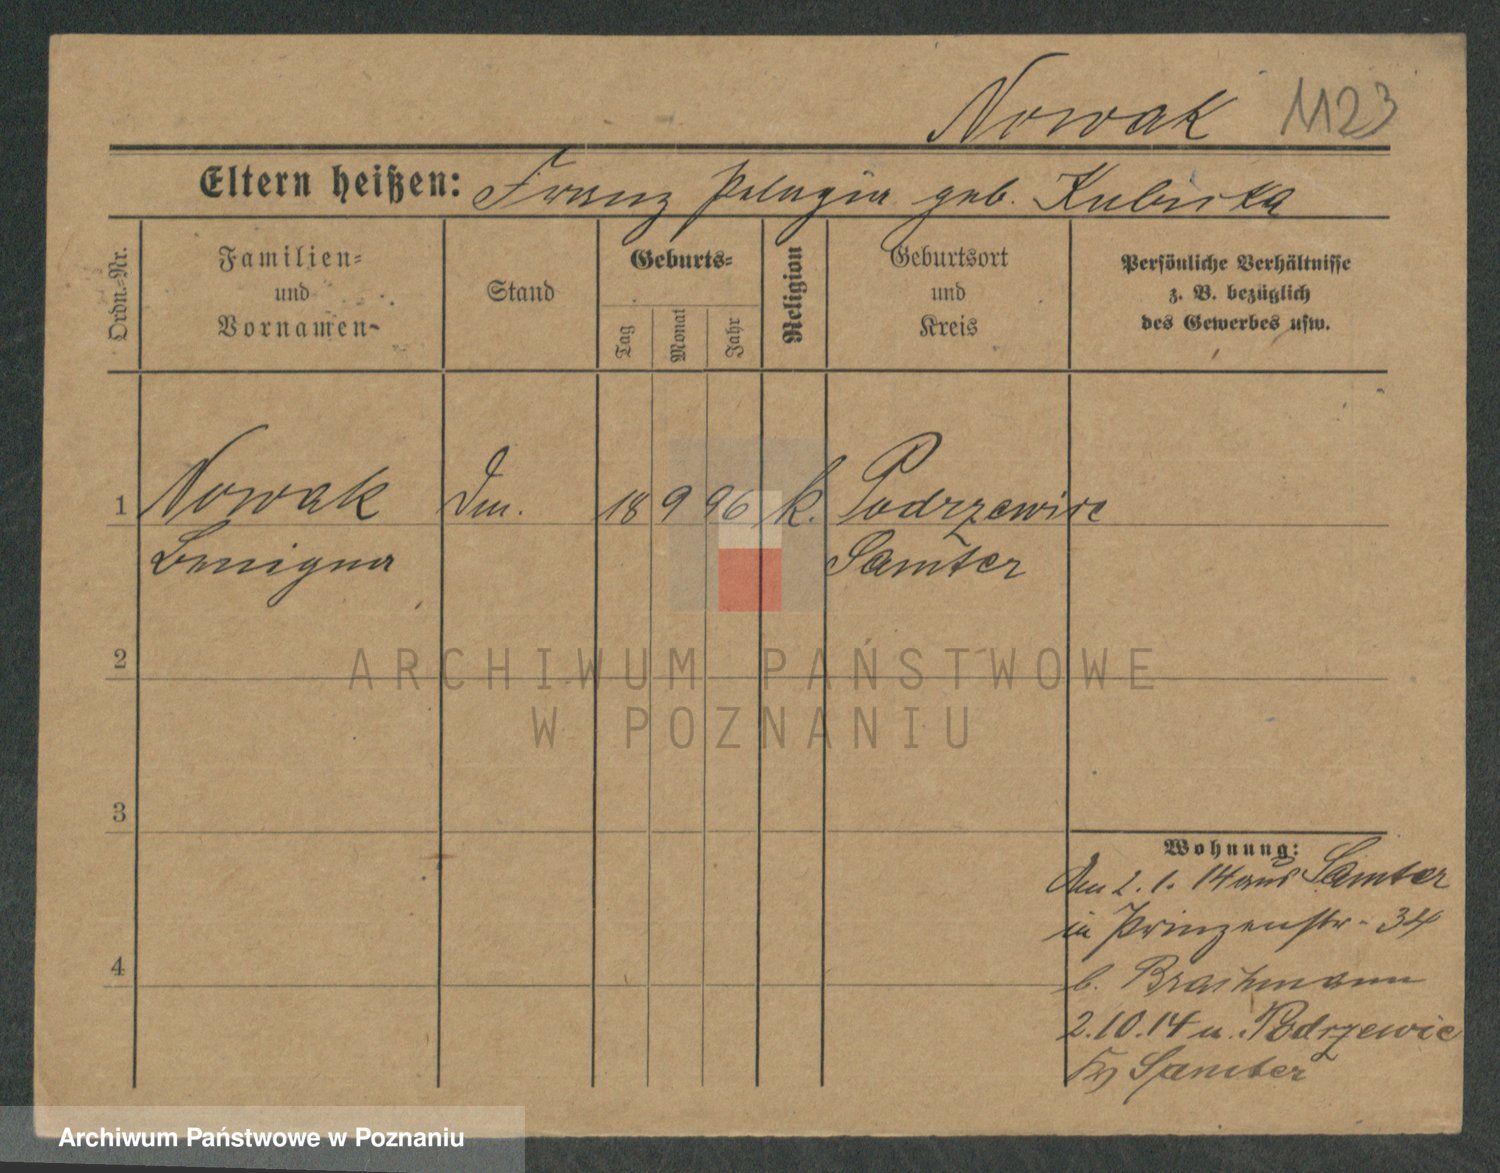 Nowak 1123
Eltern heißen: Franz Pelagia geb. Kubiska
Ordn.-Nr.
Familien-
und
Vornamen-
Stand
Geburts-
Tag
Monat
Jahr
Religion
Geburtsort
und
Kreis
Persönliche Verhältnisse
z. B. bezüglich
des Gewerbes usw.
1 Nowak 18 9 96 k. Podrzewie
Benigna Samter
2
3
4
Wohnung:
2. 1. 14 aus Samter
in Prinzenstr. 34
b. Brachmann
2.10.14 n. Podrzewie
Samter
ARCHIWUM PAŃSTWOWE
W POZNANIU
Archiwum Państwowe w Poznaniu